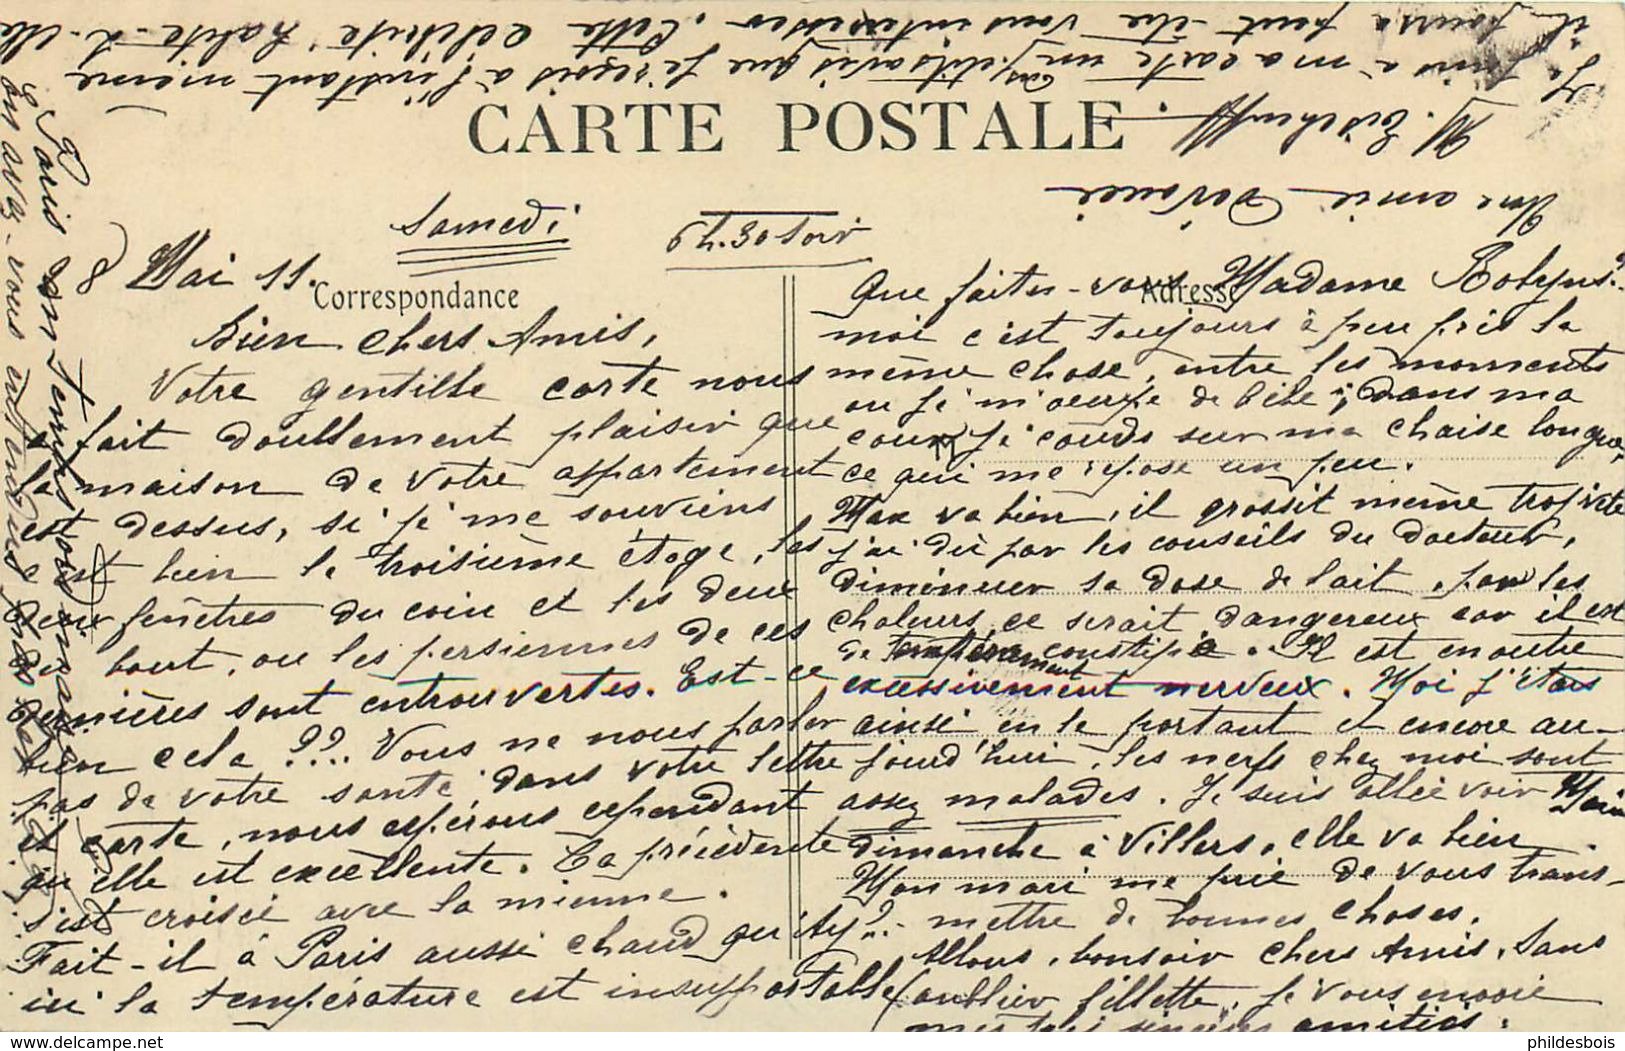 CARTE POSTALE
Samedi
6 h. 30 soir
8 Mai 11.
Correspondance
Bien chers Amis,
Votre gentille carte nous
a fait doublement plaisir que
la maison de votre appartement
est dessus, si je me souviens
c'est bien le troisième étage, les
deux fenêtres du coin et les deux
du bout, ou les persiennes de ces
dernières sont entrouvertes. Est-ce
bien cela ??.. Vous ne nous parler
pas de votre santé dans votre lettre
et carte, nous espérons cependant
qu'elle est excellente. La précédente
s'est croisée avec la mienne.
Fait-il à Paris aussi chaud qu'
ici la température est insupportable
Adresse
Que faites-vous Madame Robyns?
moi c'est toujours à peu près la
même chose, entre les moments
ou je m'occupe de bébé, dans ma
cour je couds sur ma chaise longue,
ce qui me repose un peu.
Max va bien, il grossit même trop vite
j'ai dû par les conseils du docteur,
diminuer sa dose de lait, par les
chaleurs ce serait dangereux car il est
de tempérament constipé. Il est en outre
excessivement nerveux. Moi j'étais
ainsi en le portant et encore au-
jourd'hui, les nerfs chez moi sont
assez malades. Je suis allée voir
dimanche à Villers, elle va bien.
Mon mari me prie de vous trans-
mettre de bonnes choses.
Allons, bonsoir chers Amis, sans
oublier fillette, je vous envoie
mes sincères amitiés.
Une amie dévouée
Je joins à ma carte un petit avis que je reçois à l'instant même
il pourra peut-être vous intéresser. Cette célébrité, habite-t-elle
Paris
en avez-vous
philedesbois